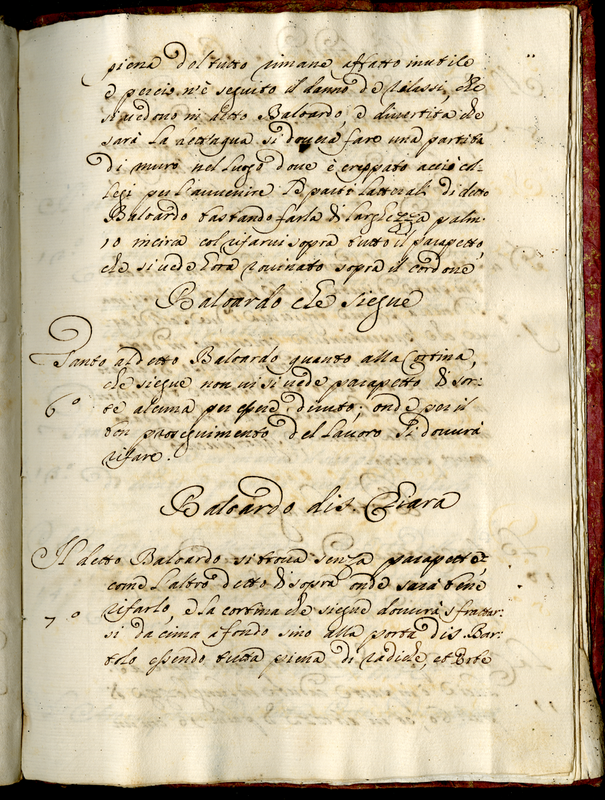 piena del tutto rimane affatto inutile
e perciò n'è seguito il danno de rilassi, che
si vedono in detto Baloardo, e divertita che
sarà la dett'acqua si dovera fare una partita
di muro nel luogo dove è creppato acciò col-
legi per l'avvenire le parti latterali di detto
Baloardo bastando farla di larghezza palm:
10 incirca col rifarvi sopra tutto il parapetto,
che si vede hora rovinato sopra il cordone
Baloardo che siegue
Tanto al detto Baloardo quanto alla Cortina,
che siegue non vi si vede parapetto di sor-
6° te alcuna per essere diruto; onde per il
ben proseguimento del lavoro si dovera
rifare.
Baloardo di S. Chiara
Il detto Baloardo si trova senza parapetto,
come l'altro detto di sopra onde sarà bene
rifarlo, e la cortina che siegue dovera sfrattar-
7° si da cima a fondo sino alla porta di S. Bar-
tolo essendo tutta piena di radiche, et erbe